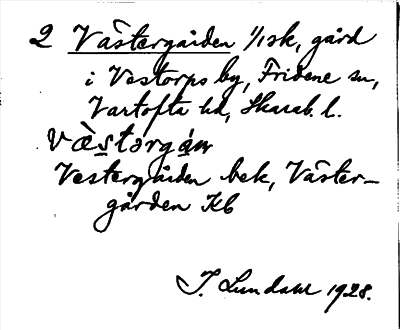 2 Västergården 1/1 sk, gård
i Vestorps by, Fridene sn,
Vartofta hd, Skarab. l.
väs̠tərgán
Vestergården bek, Väster-
gården Kb
J. Lundahl 1928.